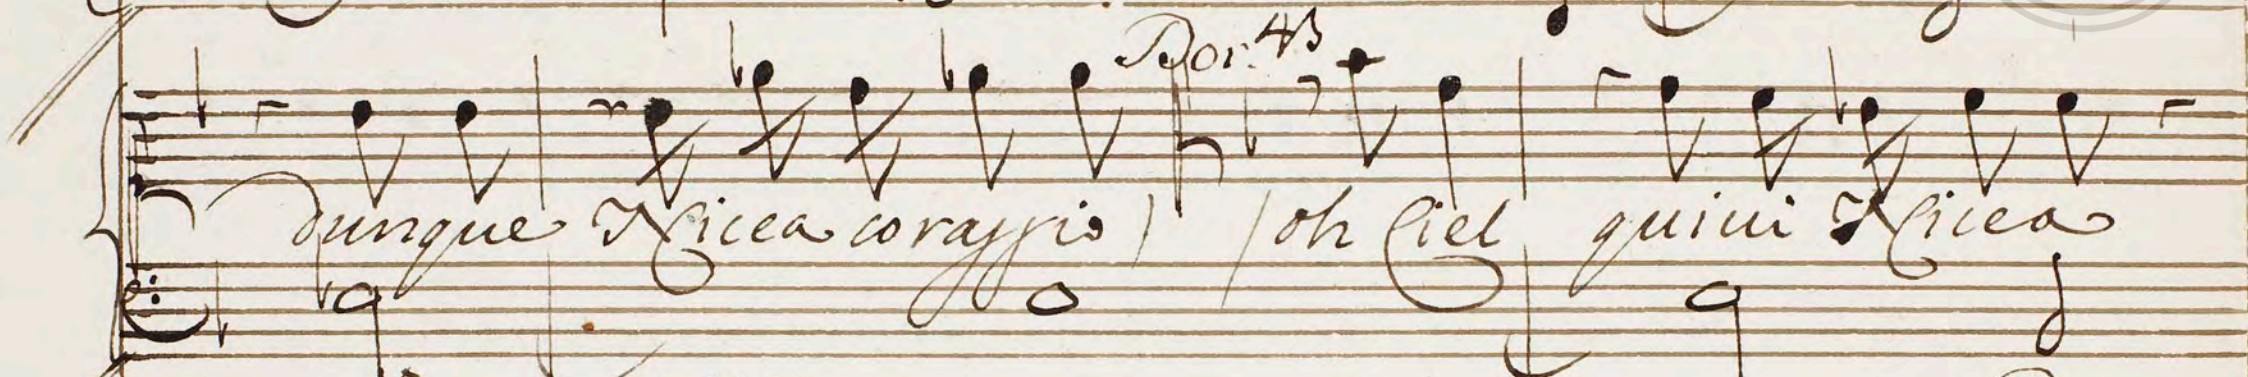 Bor:
dunque Nicea coraggio) /oh Ciel quiui Nicea